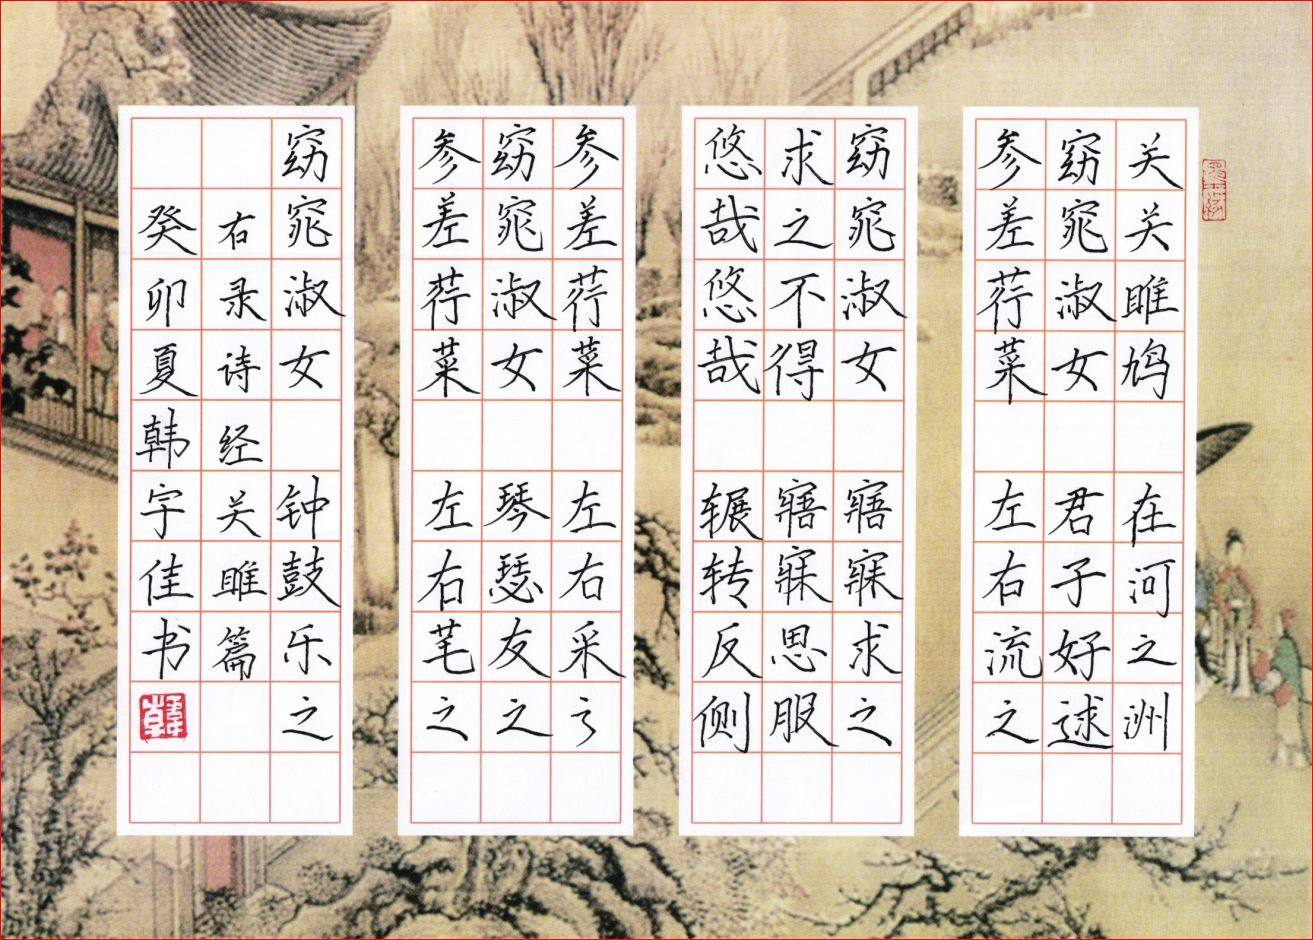 关关雎鸠 在河之洲
窈窕淑女 君子好逑
参差荇菜 左右流之
窈窕淑女 寤寐求之
求之不得 寤寐思服
悠哉悠哉 辗转反侧
参差荇菜 左右采之
窈窕淑女 琴瑟友之
参差荇菜 左右芼之
窈窕淑女 钟鼓乐之
右录诗经关雎篇
癸卯夏韩宇佳书
韓